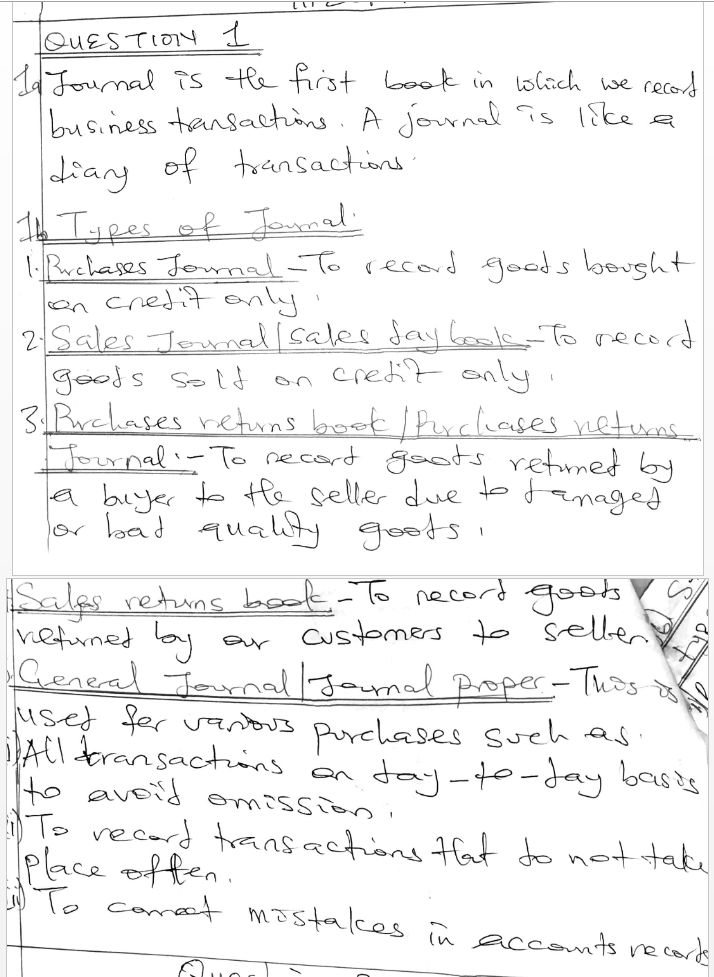 QUESTION 1
1a Journal is the first book in which we record
business transactions. A journal is like a
diary of transactions.
1b Types of Journal.
1. Purchases Journal - To record goods bought
on credit only.
2. Sales Journal/sales day book - To record
goods sold on credit only.
3. Purchases returns book/Purchases returns
Journal :- To record goods returned by
a buyer to the seller due to damaged
or bad quality goods.
Sales returns book - To record goods
returned by our customers to seller.
General Journal/Journal proper - This is
used for various purchases such as.
i) All transactions on day-to-day basis
to avoid omission.
ii) To record transactions that do not take
Place often.
iii) To correct mistakes in accounts records